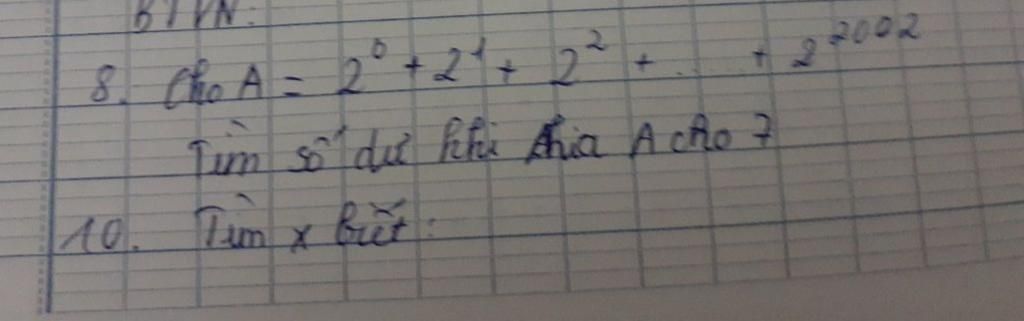 BTVN:
8. Cho A = 2⁰ + 2¹ + 2² + ... + 2²⁰⁰²
Tìm số dư khi chia A cho 7
10. Tìm x biết: